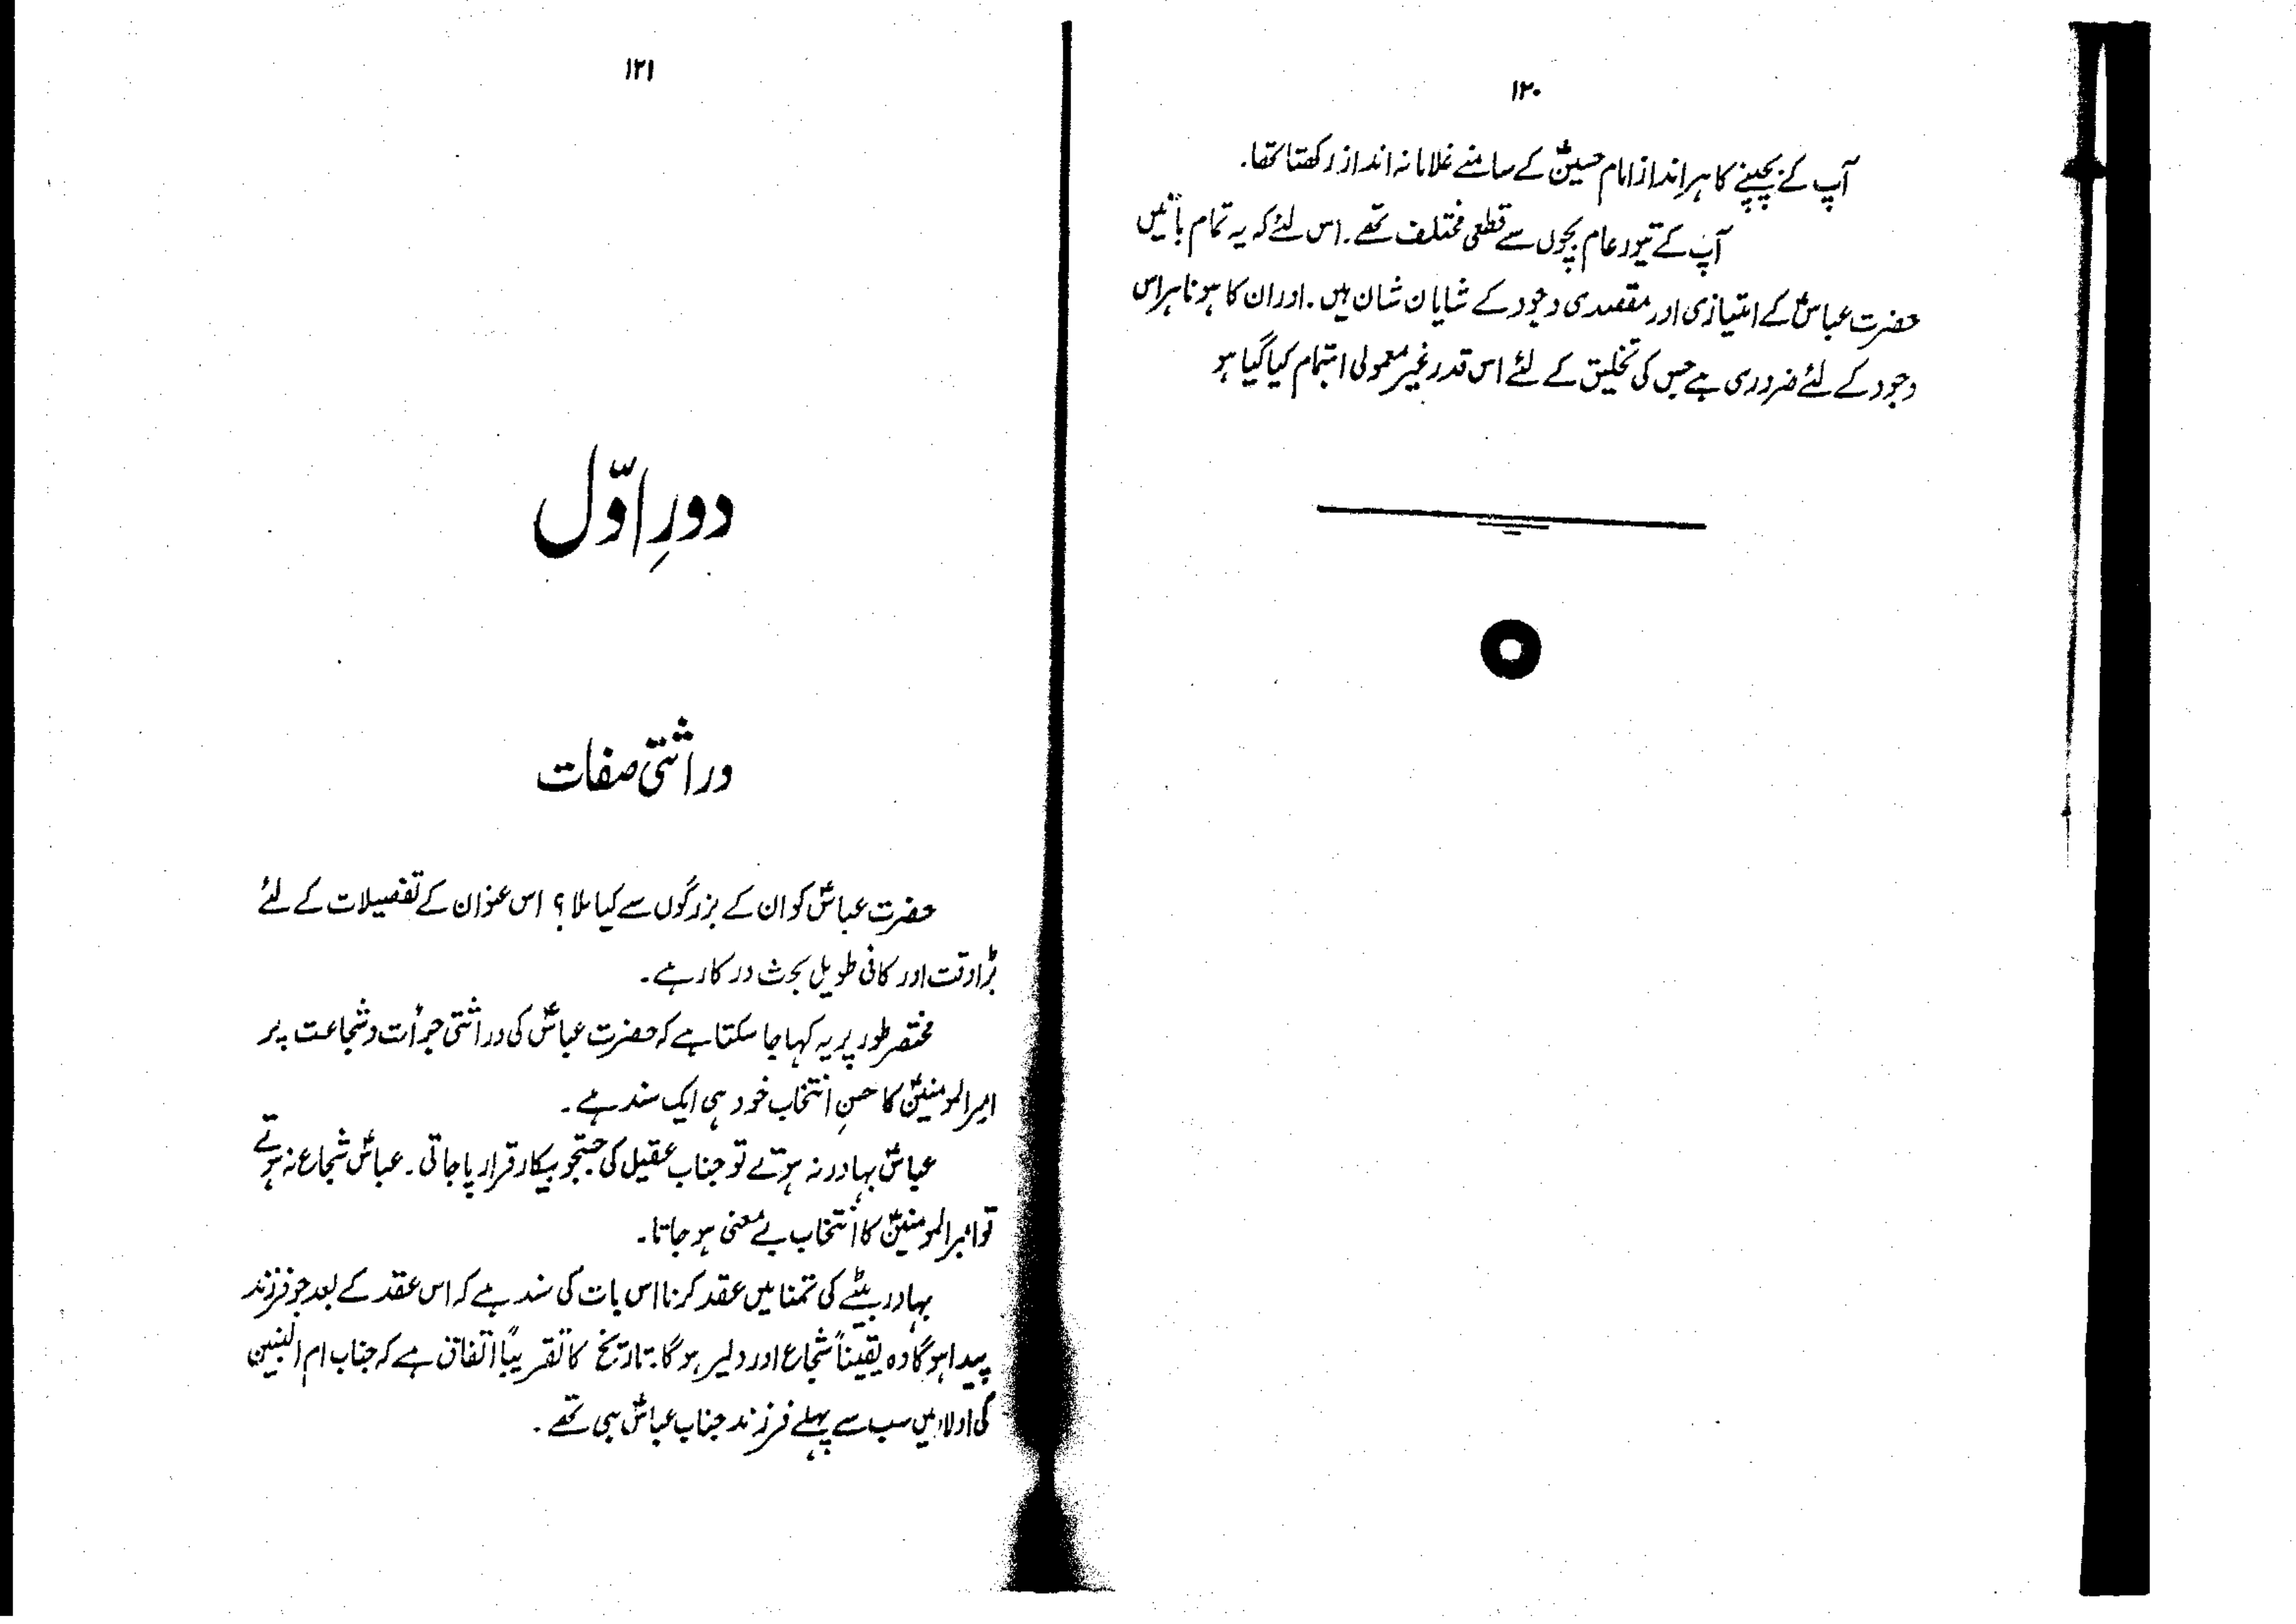 ۱۲۰
آپ کے بچپنے کا ہر انداز امام حسینؑ کے سامنے غلامانہ انداز رکھتا تھا۔
آپ کے تیور عام بچوں سے قطعی مختلف تھے۔ اس لئے کہ یہ تمام باتیں
حضرت عباسؑ کے امتیازی اور مقصدی وجود کے شایان شان ہیں۔ اور ان کا ہونا ہر اس
وجود کے لئے ضروری ہے جس کی تخلیق کے لئے اس قدر غیر معمولی اہتمام کیا گیا ہو
۱۲۱
دورِ اوّل
وراثتی صفات
حضرت عباسؑ کو ان کے بزرگوں سے کیا ملا؟ اس عنوان کے تفصیلات کے لئے
بڑا وقت اور کافی طویل بحث درکار ہے۔
مختصر طور پر یہ کہا جا سکتا ہے کہ حضرت عباسؑ کی وراثتی جرأت و شجاعت پر
امیرالمومنینؑ کا حسنِ انتخاب خود ہی ایک سند ہے۔
عباسؑ بہادر نہ ہوتے تو جناب عقیل کی جستجو بیکار قرار پا جاتی۔ عباسؑ شجاع نہ ہوتے
تو امیرالمومنینؑ کا انتخاب بے معنی ہو جاتا۔
بہادر بیٹے کی تمنا میں عقد کرنا اس بات کی سند ہے کہ اس عقد کے بعد جو فرزند
پیدا ہوگا وہ یقیناً شجاع اور دلیر ہوگا۔ تاریخ کا تقریباً اتفاق ہے کہ جناب ام البنین
کی اولاد میں سب سے پہلے فرزند جناب عباسؑ ہی تھے۔